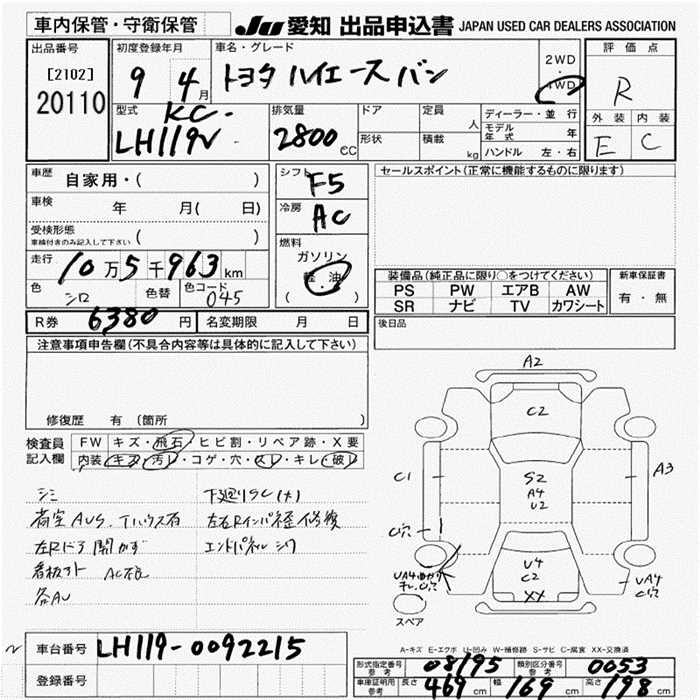 車内保管・守衛保管 JU 愛知 出品申込書 JAPAN USED CAR DEALERS ASSOCIATION
出品番号 初度登録年月 車名・グレード 評価点
[2102] 9 4月 トヨタ ハイエースバン 2WD 4WD R
20110
型式 KC- 排気量 ドア 定員 人 ディーラー・並行 外装 内装
LH119V 2800cc 形状 積載 kg モデル年式 年 E C
ハンドル 左・右
車歴 自家用・( ) シフト F5 セールスポイント(正常に機能するものに限ります)
車検 年 月( 日) 冷房 AC
受検形態 車検付きのみ記入して下さい ( ) 燃料 ガソリン
走行 10万5千963km 軽油
( )
色 シロ 色替 色コード 045 装備品(純正品に限り○をつけてください) 新車保証書
PS PW エアB AW 有・無
SR ナビ TV カワシート
R券 6380円 名変期限 月 日 後日品
注意事項申告欄(不具合内容等は具体的に記入して下さい)
修復歴 有 (箇所
検査員 FW キズ・飛石・ヒビ割・リペア跡・X要
記入欄 内装 キズ・汚レ・コゲ・穴・スレ・キレ・破レ
シミ 下廻りSC(大)
荷室AUS.Tハウス右 左右Rインパネ経修復
左Rドア開かず エンドパネルシワ
看板オト AC不良
各AU
A2
C2
C1 S2 A3
A4
U2
C穴
U4
C2
XX
UA4曲がり UA4
C穴 C穴
スペア
A-キズ E-エクボ U-凹み W-補修跡 S-サビ C-腐食 XX-交換済
車台番号 LH119-0092215
登録番号
形式指定番号 参考 08195 類別区分番号 参考 0053
車庫証明用 参考 長さ 469cm 幅 169cm 高さ 198cm